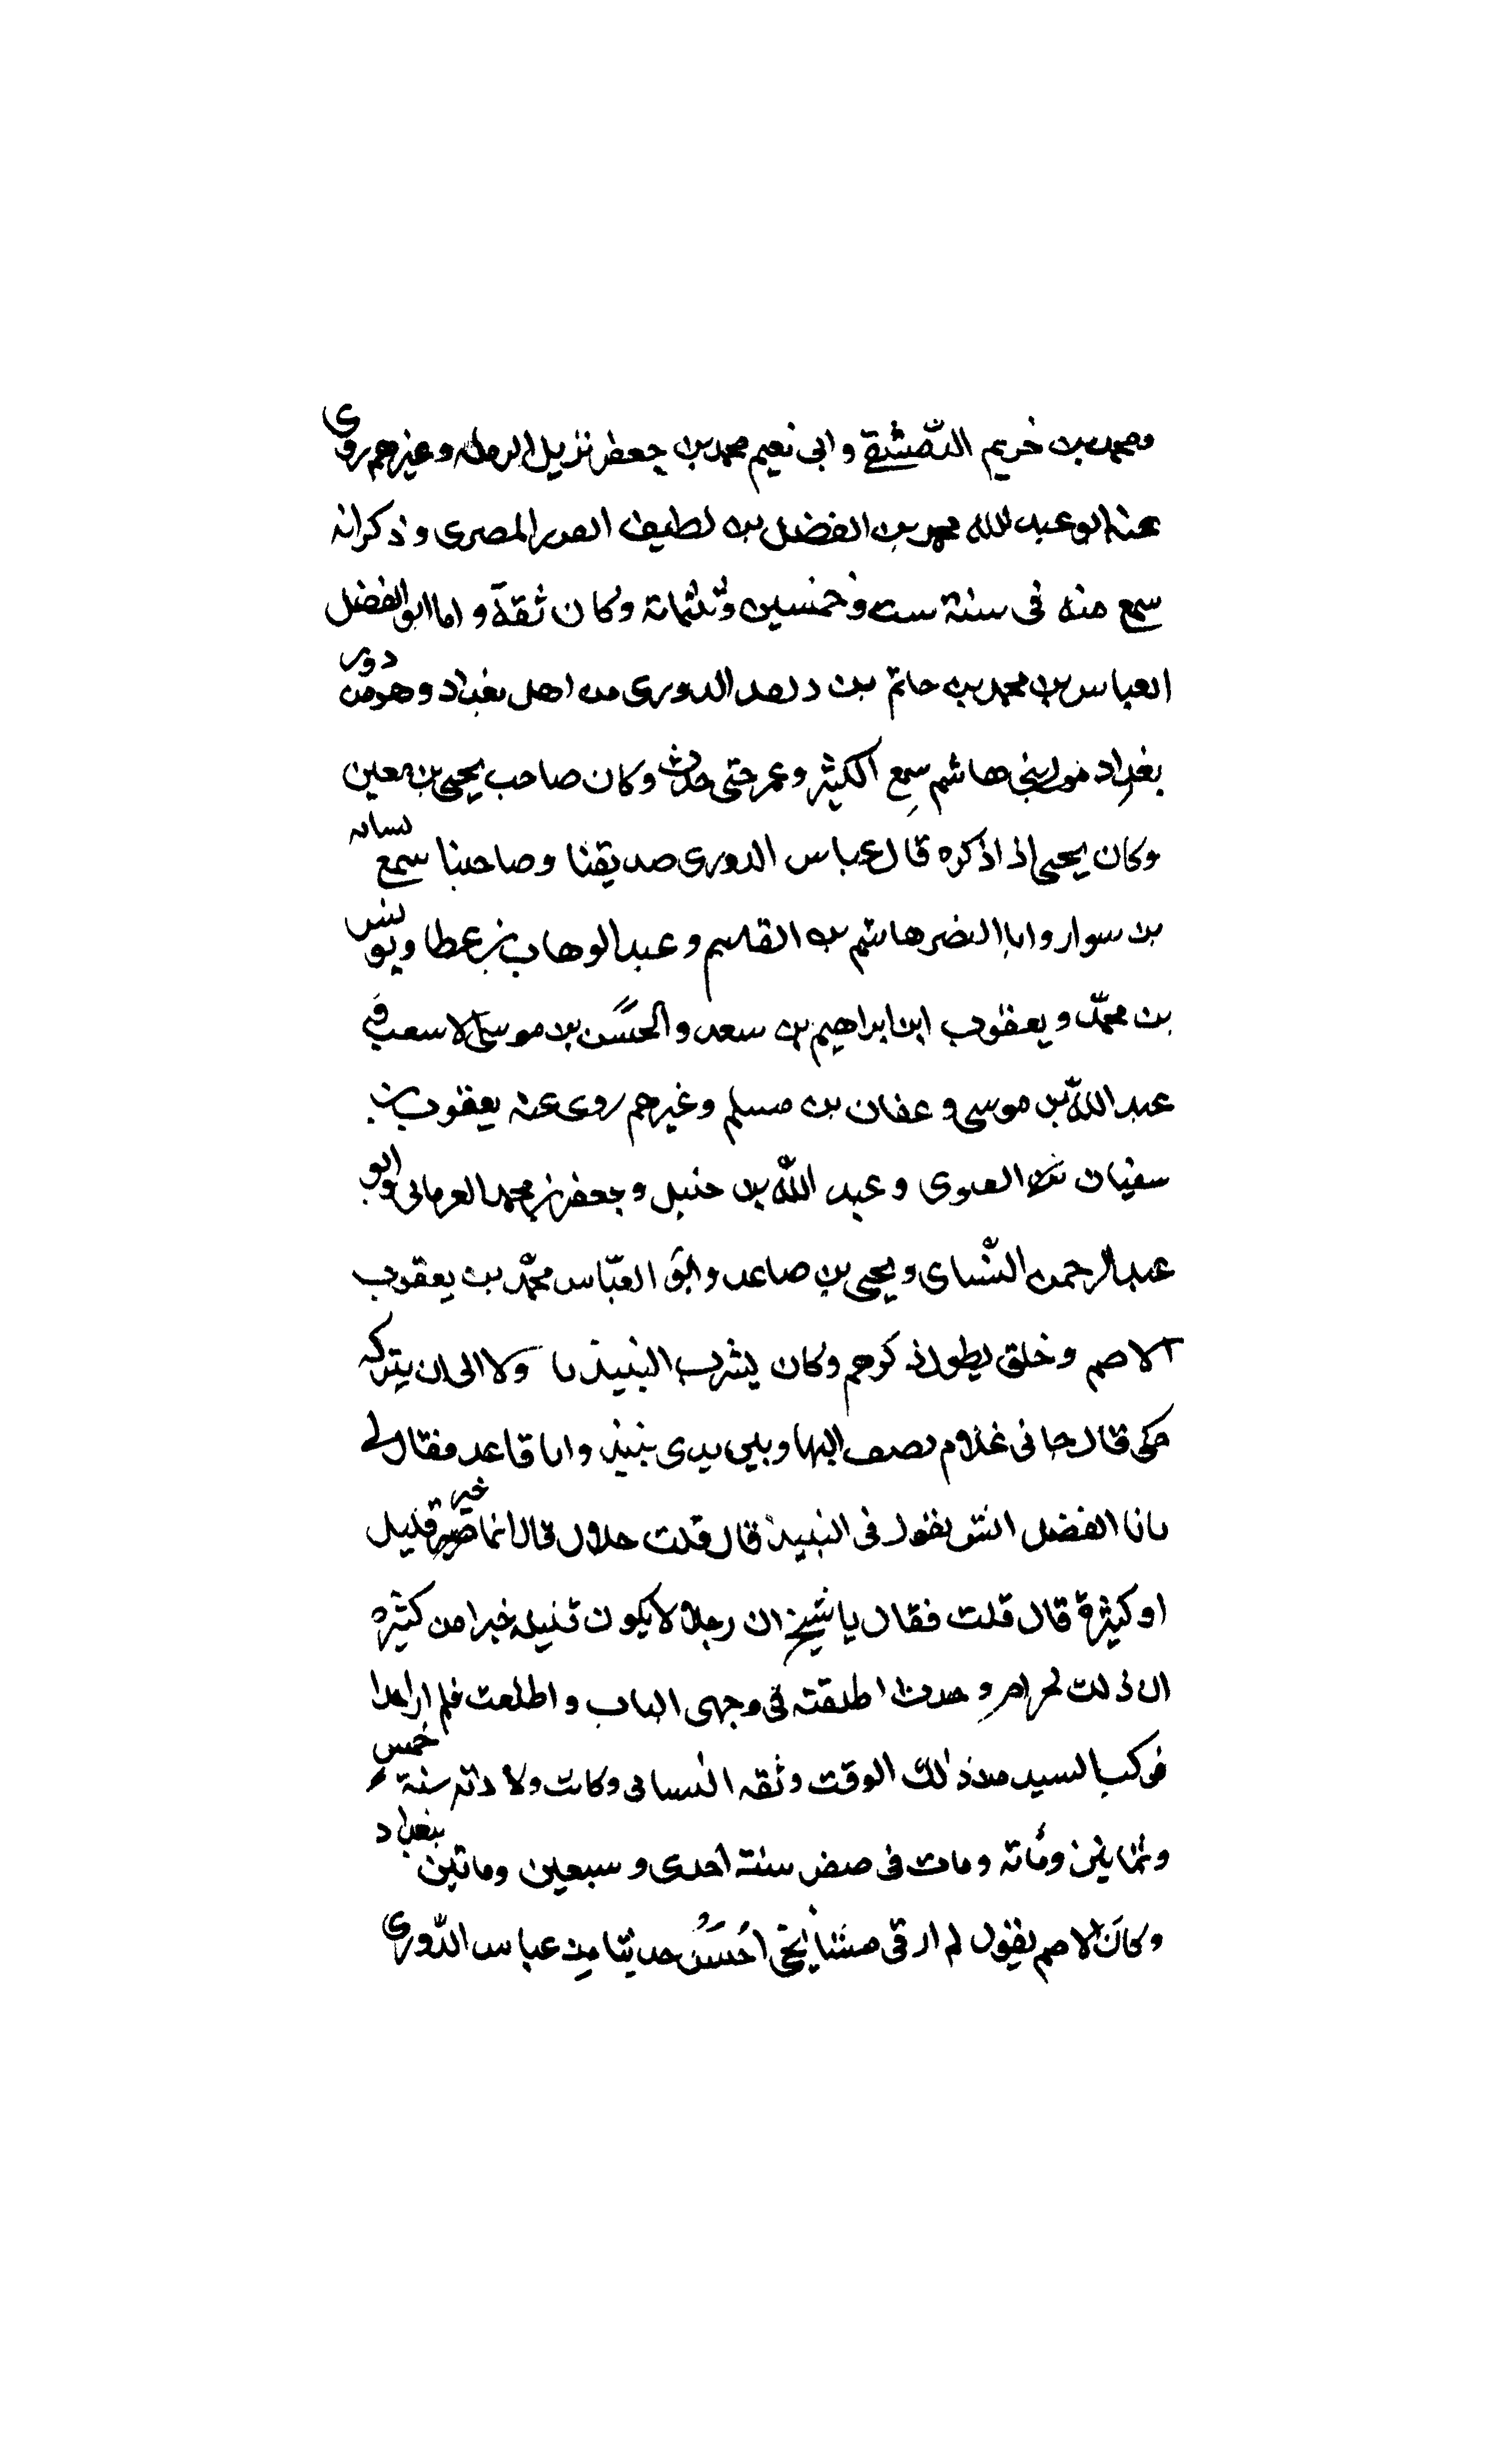 ومحمد بن خريم الدّمشقي وابى نعيم محمد بن جعفر نزيل الرمله وغيرهم روى
عنه ابو عبد الله محمد بن الفضل بن لطيف المصرى وذكر انه
سمع منه فى سنة ست وخمسين وثلثماتة وكان ثقة واما ابو الفضل
العباس بن محمد بن حاتم بن واقد الدورى من اهل بغداد وهو من دور
بغداد مولى بنى هاشم سمع الكثير وعمر حتى حدث وكان صاحب يحيى بن معين
وكان يحيى اذا ذكره قال عباس الدورى صديقنا وصاحبنا سمع شبابه
بن سوار وابا النضر هاشم بن القاسم وعبد الوهاب بن عطا ويونس
بن محمّد ويعقوب ابن ابراهيم بن سعد والحسن بن موسى الاشيب
عبد الله بن موسى وعفان بن مسلم وغيرهم روى عنه يعقوب بن
سفيان العدوى وعبد الله بن حنبل وجعفر بن محمد الفريابى وابو
عبد الرحمن النّساى ويحيى بن صاعد وابو العبّاس محمّد بن يعقوب
الاصم وخلق يطول ذكرهم وكان يشرب النبيذ ولا الى ان يتركه
حكى قال جانى غلام نصف النهار وبين يدى نبيذ وانا قاعد فقال لى
يا ابا الفضل ايش تقول فى النبيذ قال قلت حلال قال ايما خير قليل
او كثيرة قال قلت فقال يا شيخ ان رجلا لا يكون قليله خيرا من كثيره
ان ذلك لحرام اطلقته فى وجهى الباب واطلعت فلم ار احدا
من ذلك الوقت وثقه النسائى وكانت ولادته سنة خمس
وثمانين وماتة ومات فى صفر سنة احدى وسبعين وماتين ببغداد
وكان الاصم يقول لم ار فى مشايخى احسن حديثا من عباس الدّورى